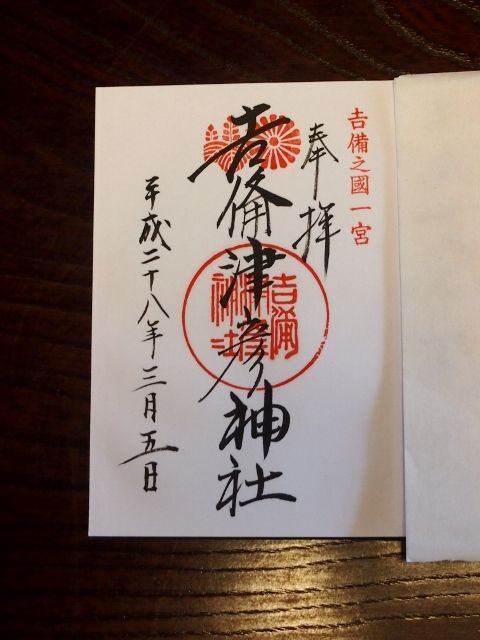 吉備之國一宮
奉拝
吉備津彦神社
平成二十八年三月五日